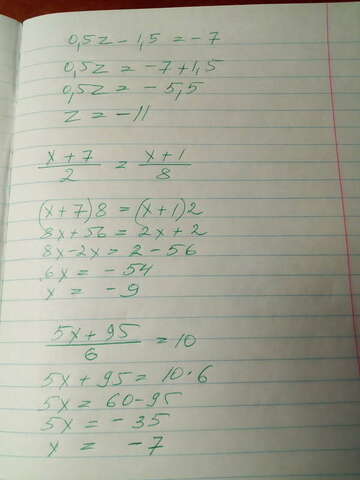 0,5z - 1,5 = -7
0,5z = -7 + 1,5
0,5z = -5,5
z = -11
(x + 7)/2 = (x + 1)/8
(x + 7) 8 = (x + 1) 2
8x + 56 = 2x + 2
8x - 2x = 2 - 56
6x = -54
x = -9
(5x + 95)/6 = 10
5x + 95 = 10 · 6
5x = 60 - 95
5x = -35
x = -7